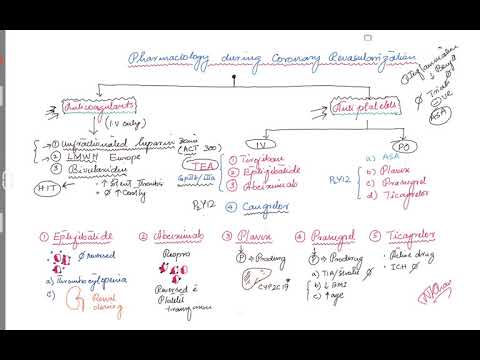 Pharmacology during Coronary Revascularization
Inflammation
↓ Benefit
Ø Trials
⊖ve
ASA
Anticoagulants
(IV only)
Antiplatelets
① Unfractionated heparin
(ACT 300)
② LMWH Europe
③ Bivalirudin
HIT
• ↑ Stent Thrombosis
• Ø ↑ Costly
TEA
GpIIb/IIIa
P2Y12
IV
① Tirofiban
② Eptifibatide
③ Abciximab
④ Cangrelor
PO
a) ASA
P2Y12
b) Plavix
c) Prasugrel
d) Ticagrelor
① Eptifibatide
• Ø reversed
a) Thrombocytopenia
c) Renal dosing
② Abciximab
Reopro
Reversed c̄
Platelet
transfusion
③ Plavix
Ⓟ → Prodrug
CYP2C19
④ Prasugrel
Ⓟ → Prodrug
a) TIA/Stroke Ø
b) ↓ BMI
c) ↑ age
⑤ Ticagrelor
• Active drug
• ICH Ø